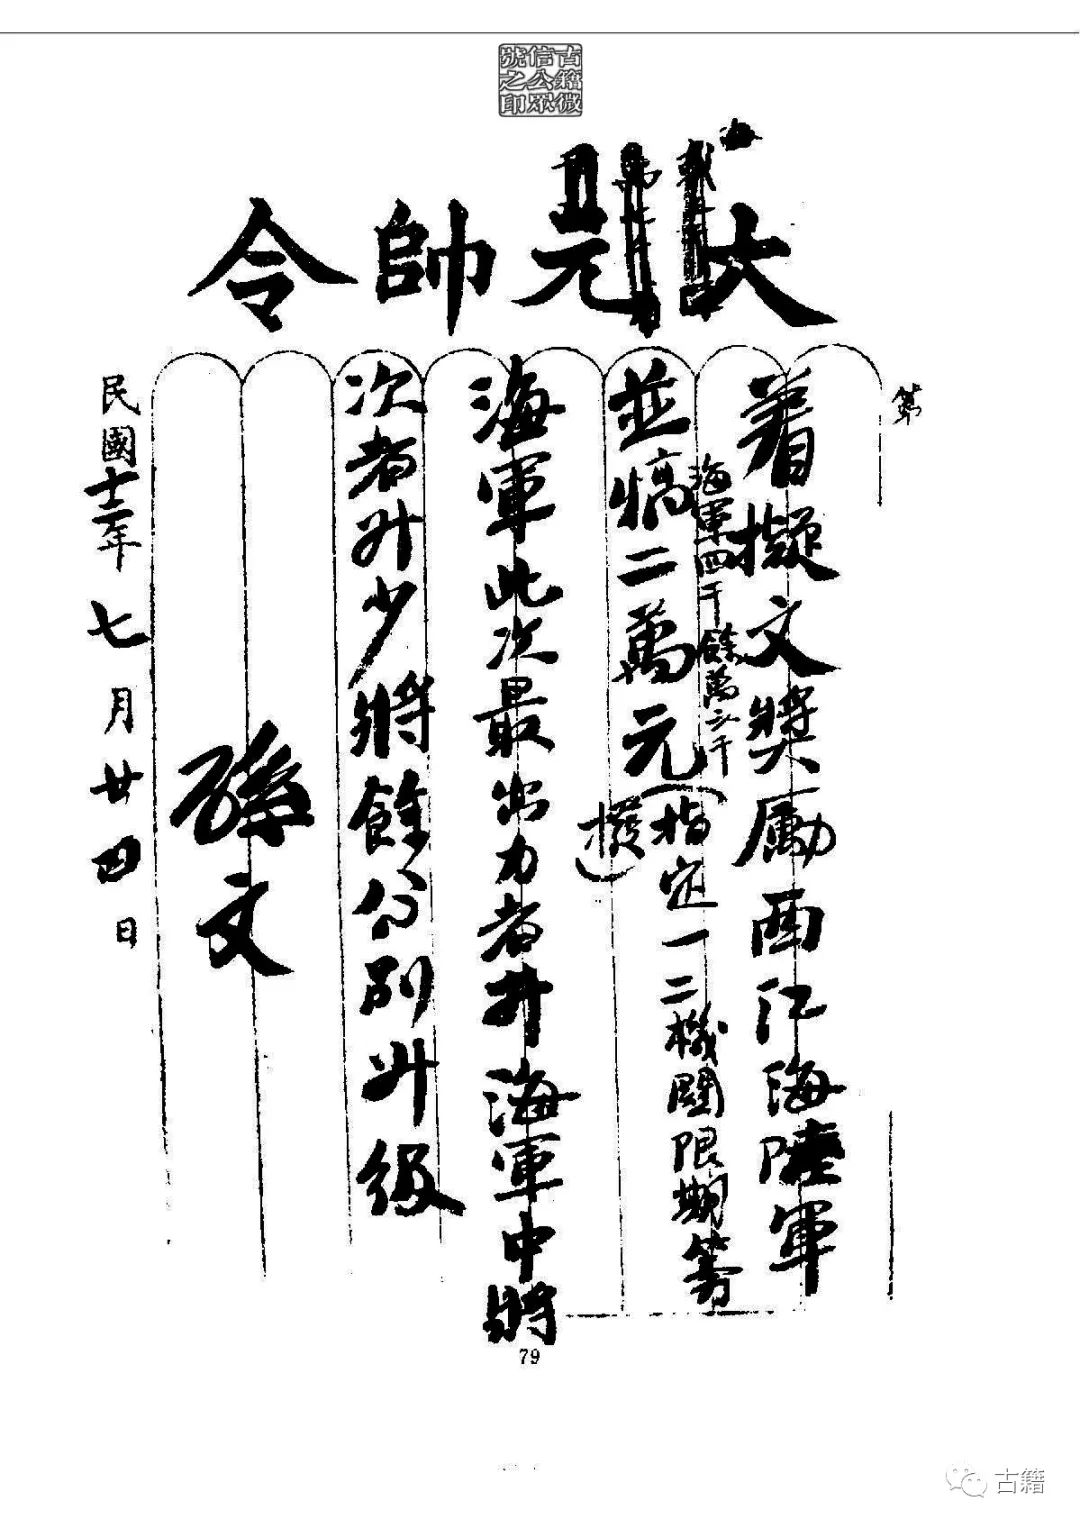 古籍微
信公眾
號之印
海
大元帥令
第
着擬文獎勵西江海陸軍
海軍四千餘萬六千
並犒二萬元(指定一二機關限期籌
撥)
海軍此次最出力者升海軍中將
次者升少將餘分別升級
孫文
民國十二年七月廿四日
79
古籍